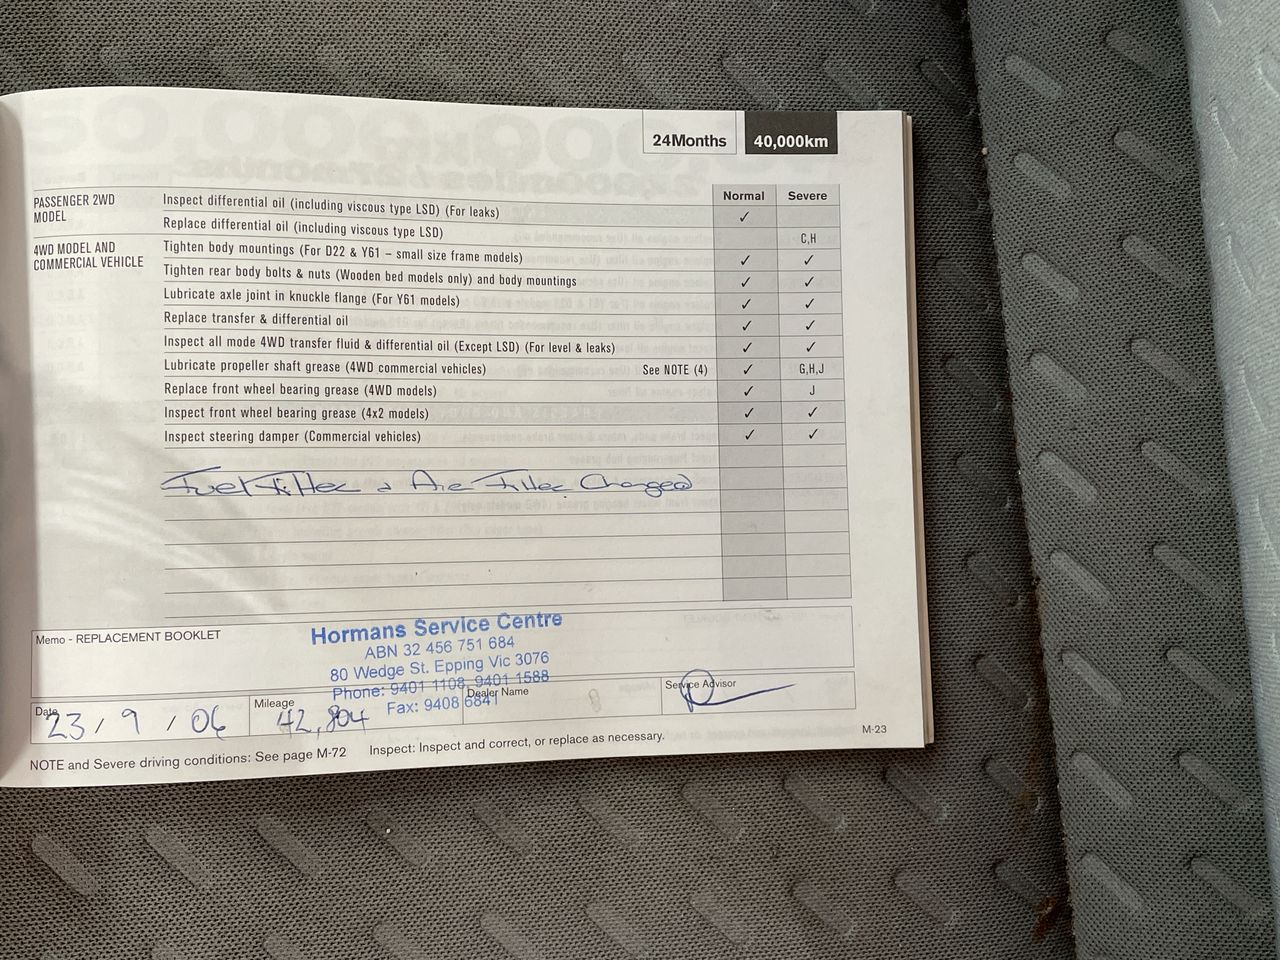 24Months 40,000km
Normal Severe
PASSENGER 2WD MODEL
Inspect differential oil (including viscous type LSD) (For leaks) ✓
Replace differential oil (including viscous type LSD) C,H
4WD MODEL AND COMMERCIAL VEHICLE
Tighten body mountings (For D22 & Y61 – small size frame models) ✓ ✓
Tighten rear body bolts & nuts (Wooden bed models only) and body mountings ✓ ✓
Lubricate axle joint in knuckle flange (For Y61 models) ✓ ✓
Replace transfer & differential oil ✓ ✓
Inspect all mode 4WD transfer fluid & differential oil (Except LSD) (For level & leaks) ✓ ✓
Lubricate propeller shaft grease (4WD commercial vehicles) See NOTE (4) ✓ G,H,J
Replace front wheel bearing grease (4WD models) ✓ J
Inspect front wheel bearing grease (4x2 models) ✓ ✓
Inspect steering damper (Commercial vehicles) ✓ ✓
Fuel Filter & Air Filter Changed
Memo - REPLACEMENT BOOKLET
Hormans Service Centre
ABN 32 456 751 684
80 Wedge St. Epping Vic 3076
Phone: 9401 1108, 9401 1588
Fax: 9408 6841
Date 23 / 9 / 06
Mileage 42,804
Dealer Name
Service Advisor
NOTE and Severe driving conditions: See page M-72 Inspect: Inspect and correct, or replace as necessary.
M-23